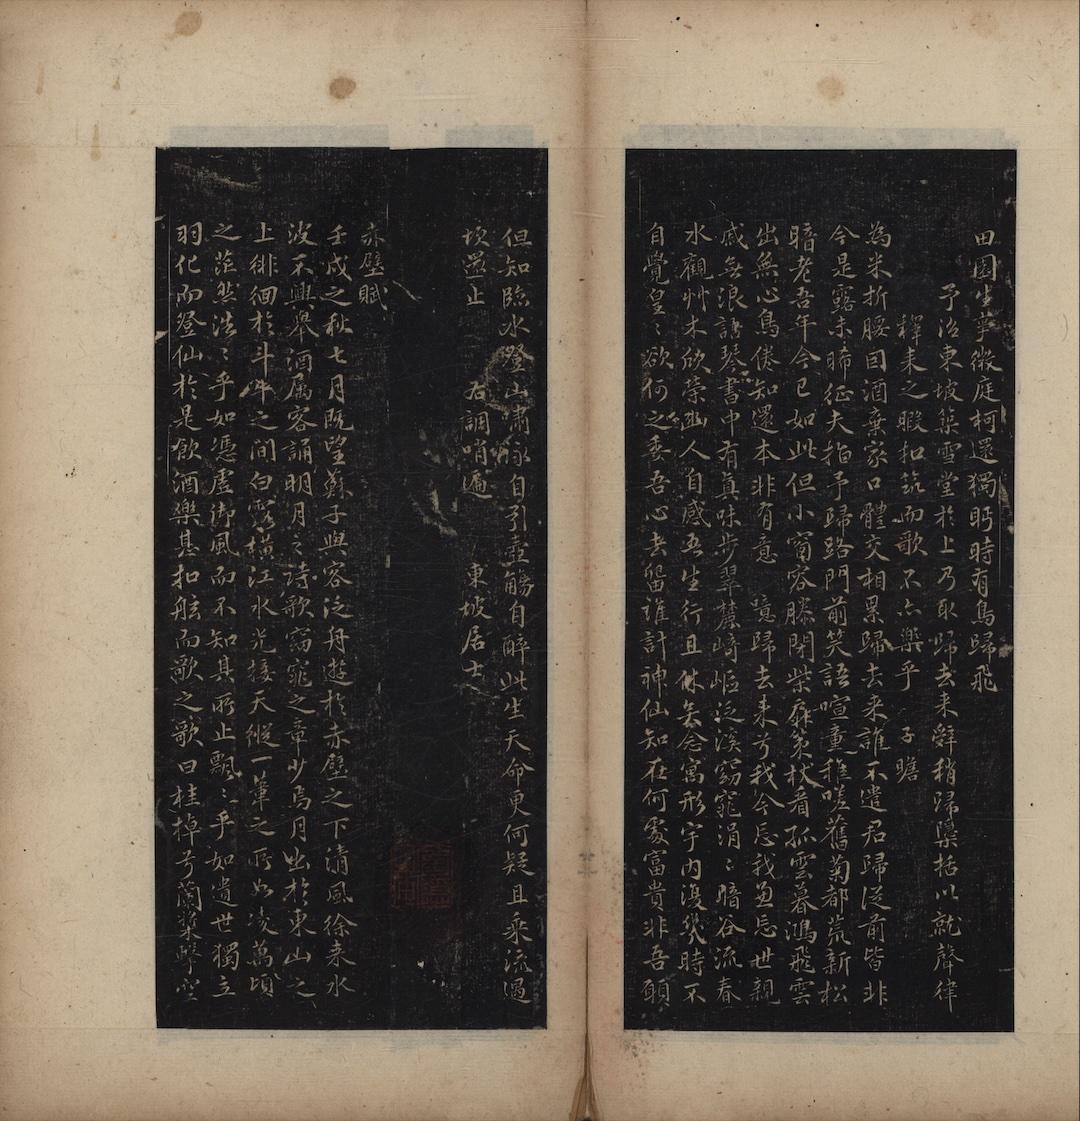 田園生事微庭柯還獨眄時有鳥歸飛
予治東坡築雪堂於上乃取歸去来辭稍歸檃括以就聲律
釋耒之暇扣筑而歌不亦樂乎　子瞻
為米折腰因酒棄家口體交相累歸去来誰不遣君歸從前皆非
今是露未晞征夫指予歸路門前笑語喧童稚嗟舊菊都荒新松
暗老吾年今已如此但小窗容膝閉柴扉策杖看孤雲暮鴻飛雲
出無心鳥倦知還本非有意　噫歸去来兮我今忘我兼忘世親
戚無浪語琴書中有真味步翠麓崎嶇泛溪窈窕涓〻暗谷流春
水觀艸木欣榮幽人自感吾生行且休矣念寓形宇內復幾時不
自覺皇〻欲何之委吾心去留誰計神仙知在何處富貴非吾願
但知臨水登山嘯詠自引壺觴自醉此生天命更何疑且乗流遇
坎還止　右調哨遍　東坡居士
赤壁賦
壬戌之秋七月既望蘇子與客泛舟遊於赤壁之下清風徐来水
波不興舉酒属客誦明月之詩歌窈窕之章少焉月出於東山之
上徘徊於斗牛之間白露橫江水光接天縱一葦之所如凌萬頃
之茫然浩〻乎如憑虛御風而不知其所止飄〻乎如遺世獨立
羽化而登仙於是飲酒樂甚扣舷而歌之歌曰桂棹兮蘭槳擊空